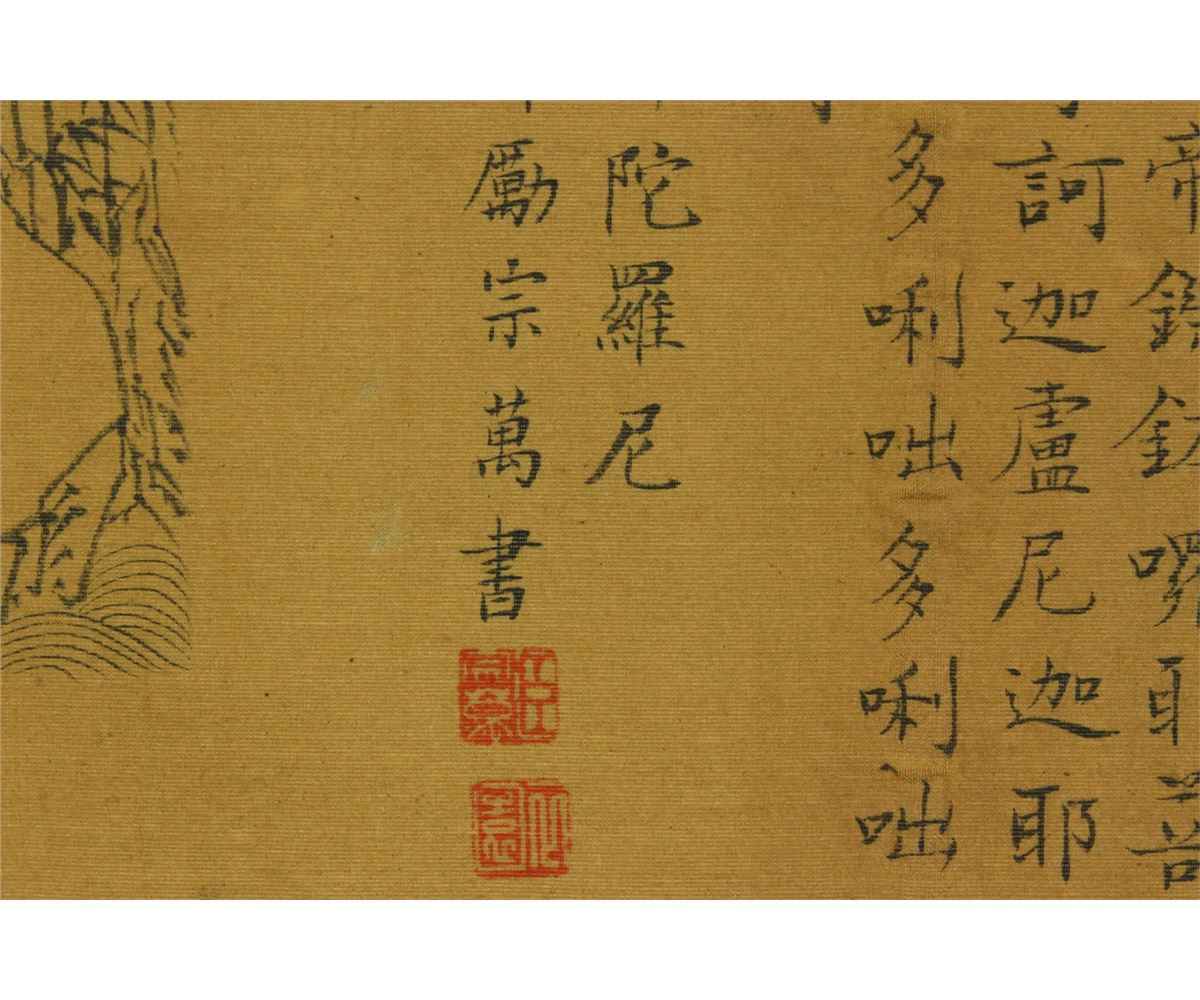 帝鉢囉耶菩
訶迦盧尼迦耶
多唎咄多唎咄
陀羅尼
勵宗萬書
臣宗萬